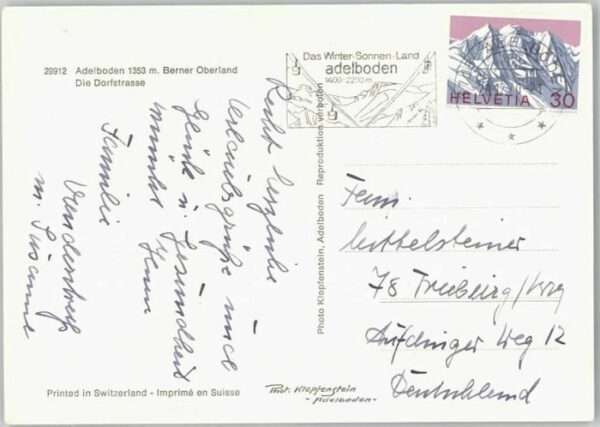 29912 Adelboden 1353 m. Berner Oberland
Die Dorfstrasse
Das Winter-Sonnen-Land
adelboden
1400-2200 m
HELVETIA 30
Recht herzliche
Urlaubsgrüße und
Glück u. Gesundheit
wünscht Ihnen
Familie
m. Susanne
Photo Klopfenstein, Adelboden Reproduktion verboten
Fam.
Mittelsteiner
78 Freiburg/Brg
Aufdinger Weg 12
Deutschland
Printed in Switzerland - Imprimé en Suisse
Phot. Klopfenstein
-Adelboden-